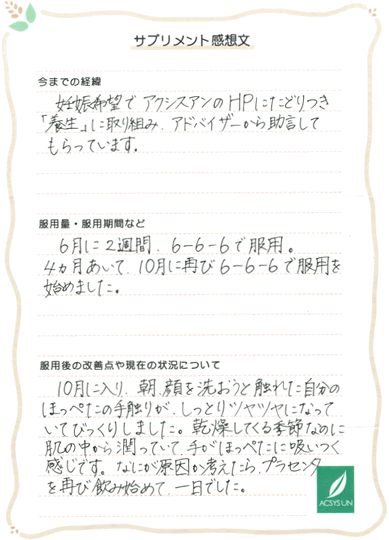 サプリメント感想文
今までの経緯
妊娠希望でアクシスアンのHPにたどりつき
「養生」に取り組み、アドバイザーから助言して
もらっています。
服用量・服用期間など
6月に2週間、6-6-6で服用。
4ヵ月あいて、10月に再び6-6-6で服用を
始めました。
服用後の改善点や現在の状況について
10月に入り、朝、顔を洗おうと触れた自分の
ほっぺたの手触りが、しっとりツヤツヤになって
いてびっくりしました。乾燥してくる季節なのに
肌の中から潤っていて、手がほっぺたに吸いつく
感じです。なにが原因か考えたら、プラセンタ
を再び飲み始めて、一日でした。
ACSYSUN